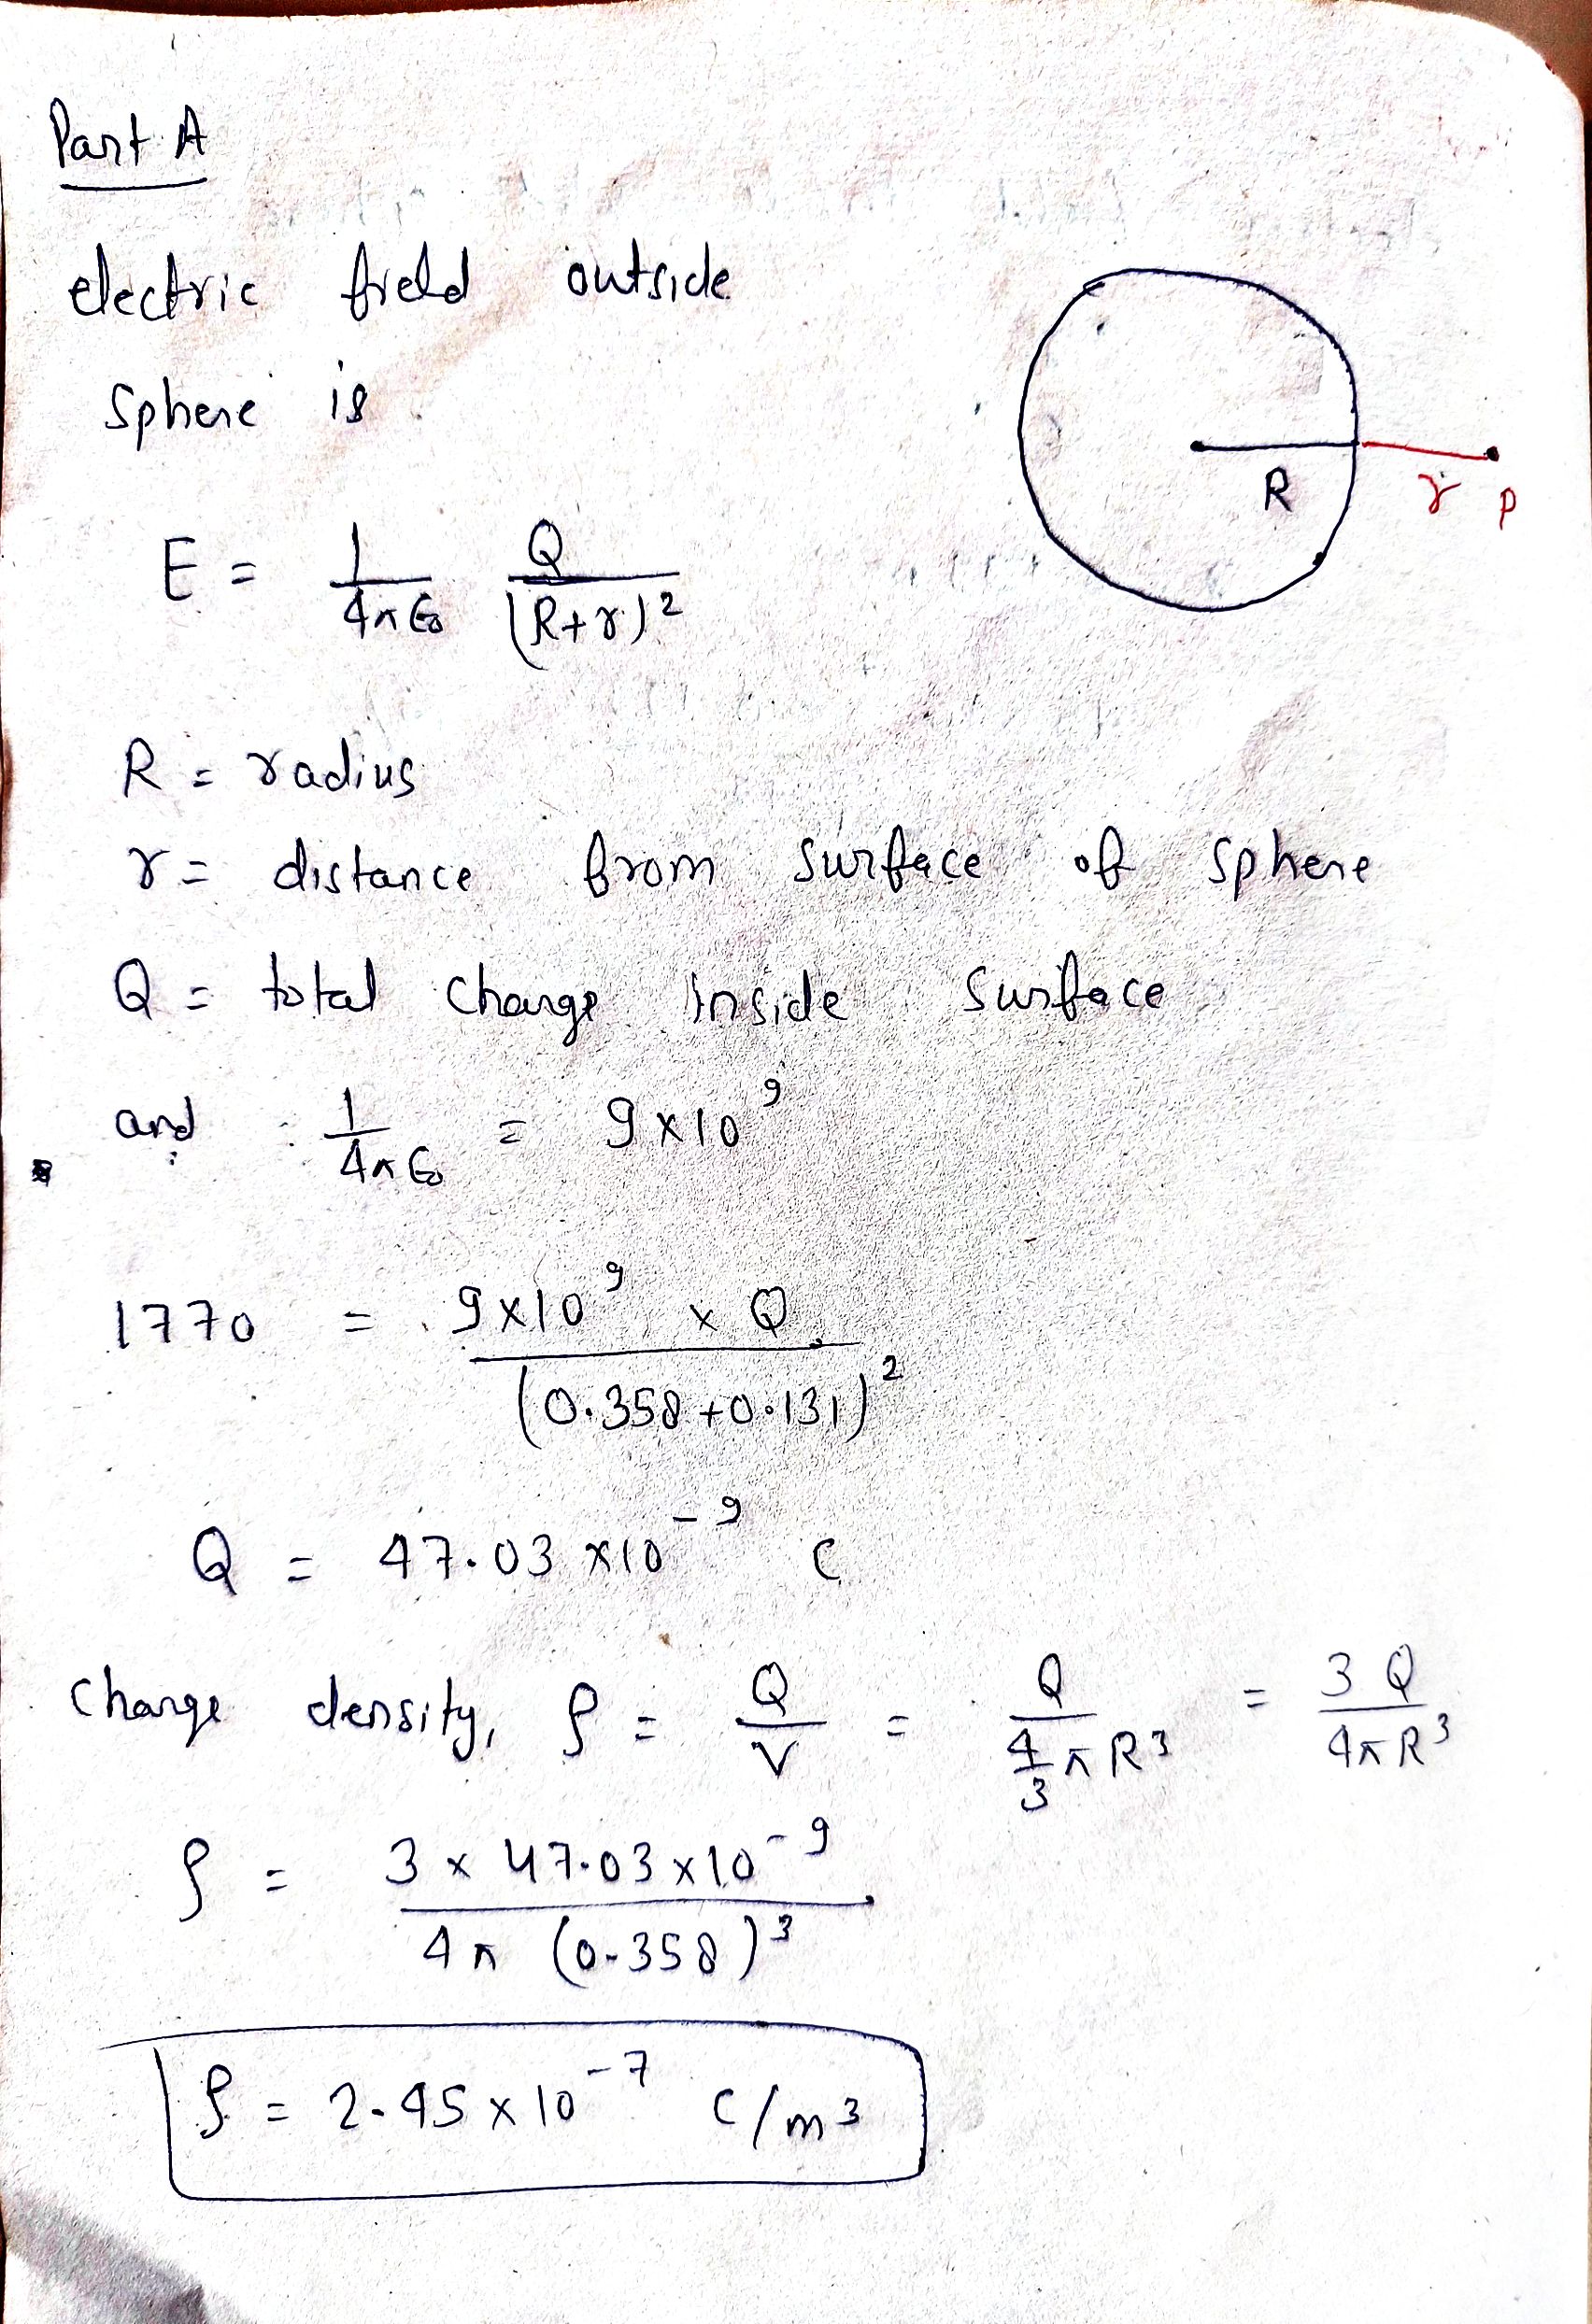 Part A
electric field outside
sphere is
R r P
E = 1/4πϵ₀ Q/(R+r)²
R = radius
r = distance from surface of sphere
Q = total charge inside surface
and 1/4πϵ₀ = 9×10⁹
1770 = 9×10⁹ × Q / (0.358+0.131)²
Q = 47.03 ×10⁻⁹ C
Charge density, ρ = Q/V = Q/(4/3 πR³) = 3Q/4πR³
ρ = 3 × 47.03×10⁻⁹ / 4π (0.358)³
ρ = 2.45 × 10⁻⁷ C/m³